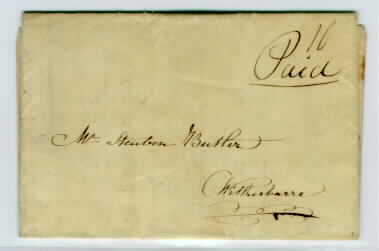 16
Paid
Mr Steuben Butler
Wilkesbarre